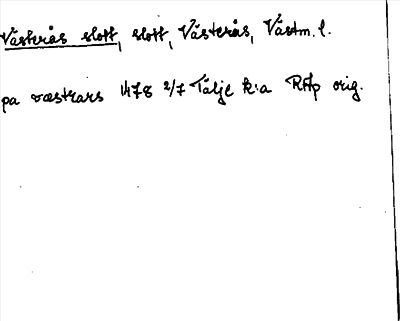 Västerås slott, slott, Västerås, Västm. l.
pa væstrars 1478 2/7 Tälje k:a RAp orig.